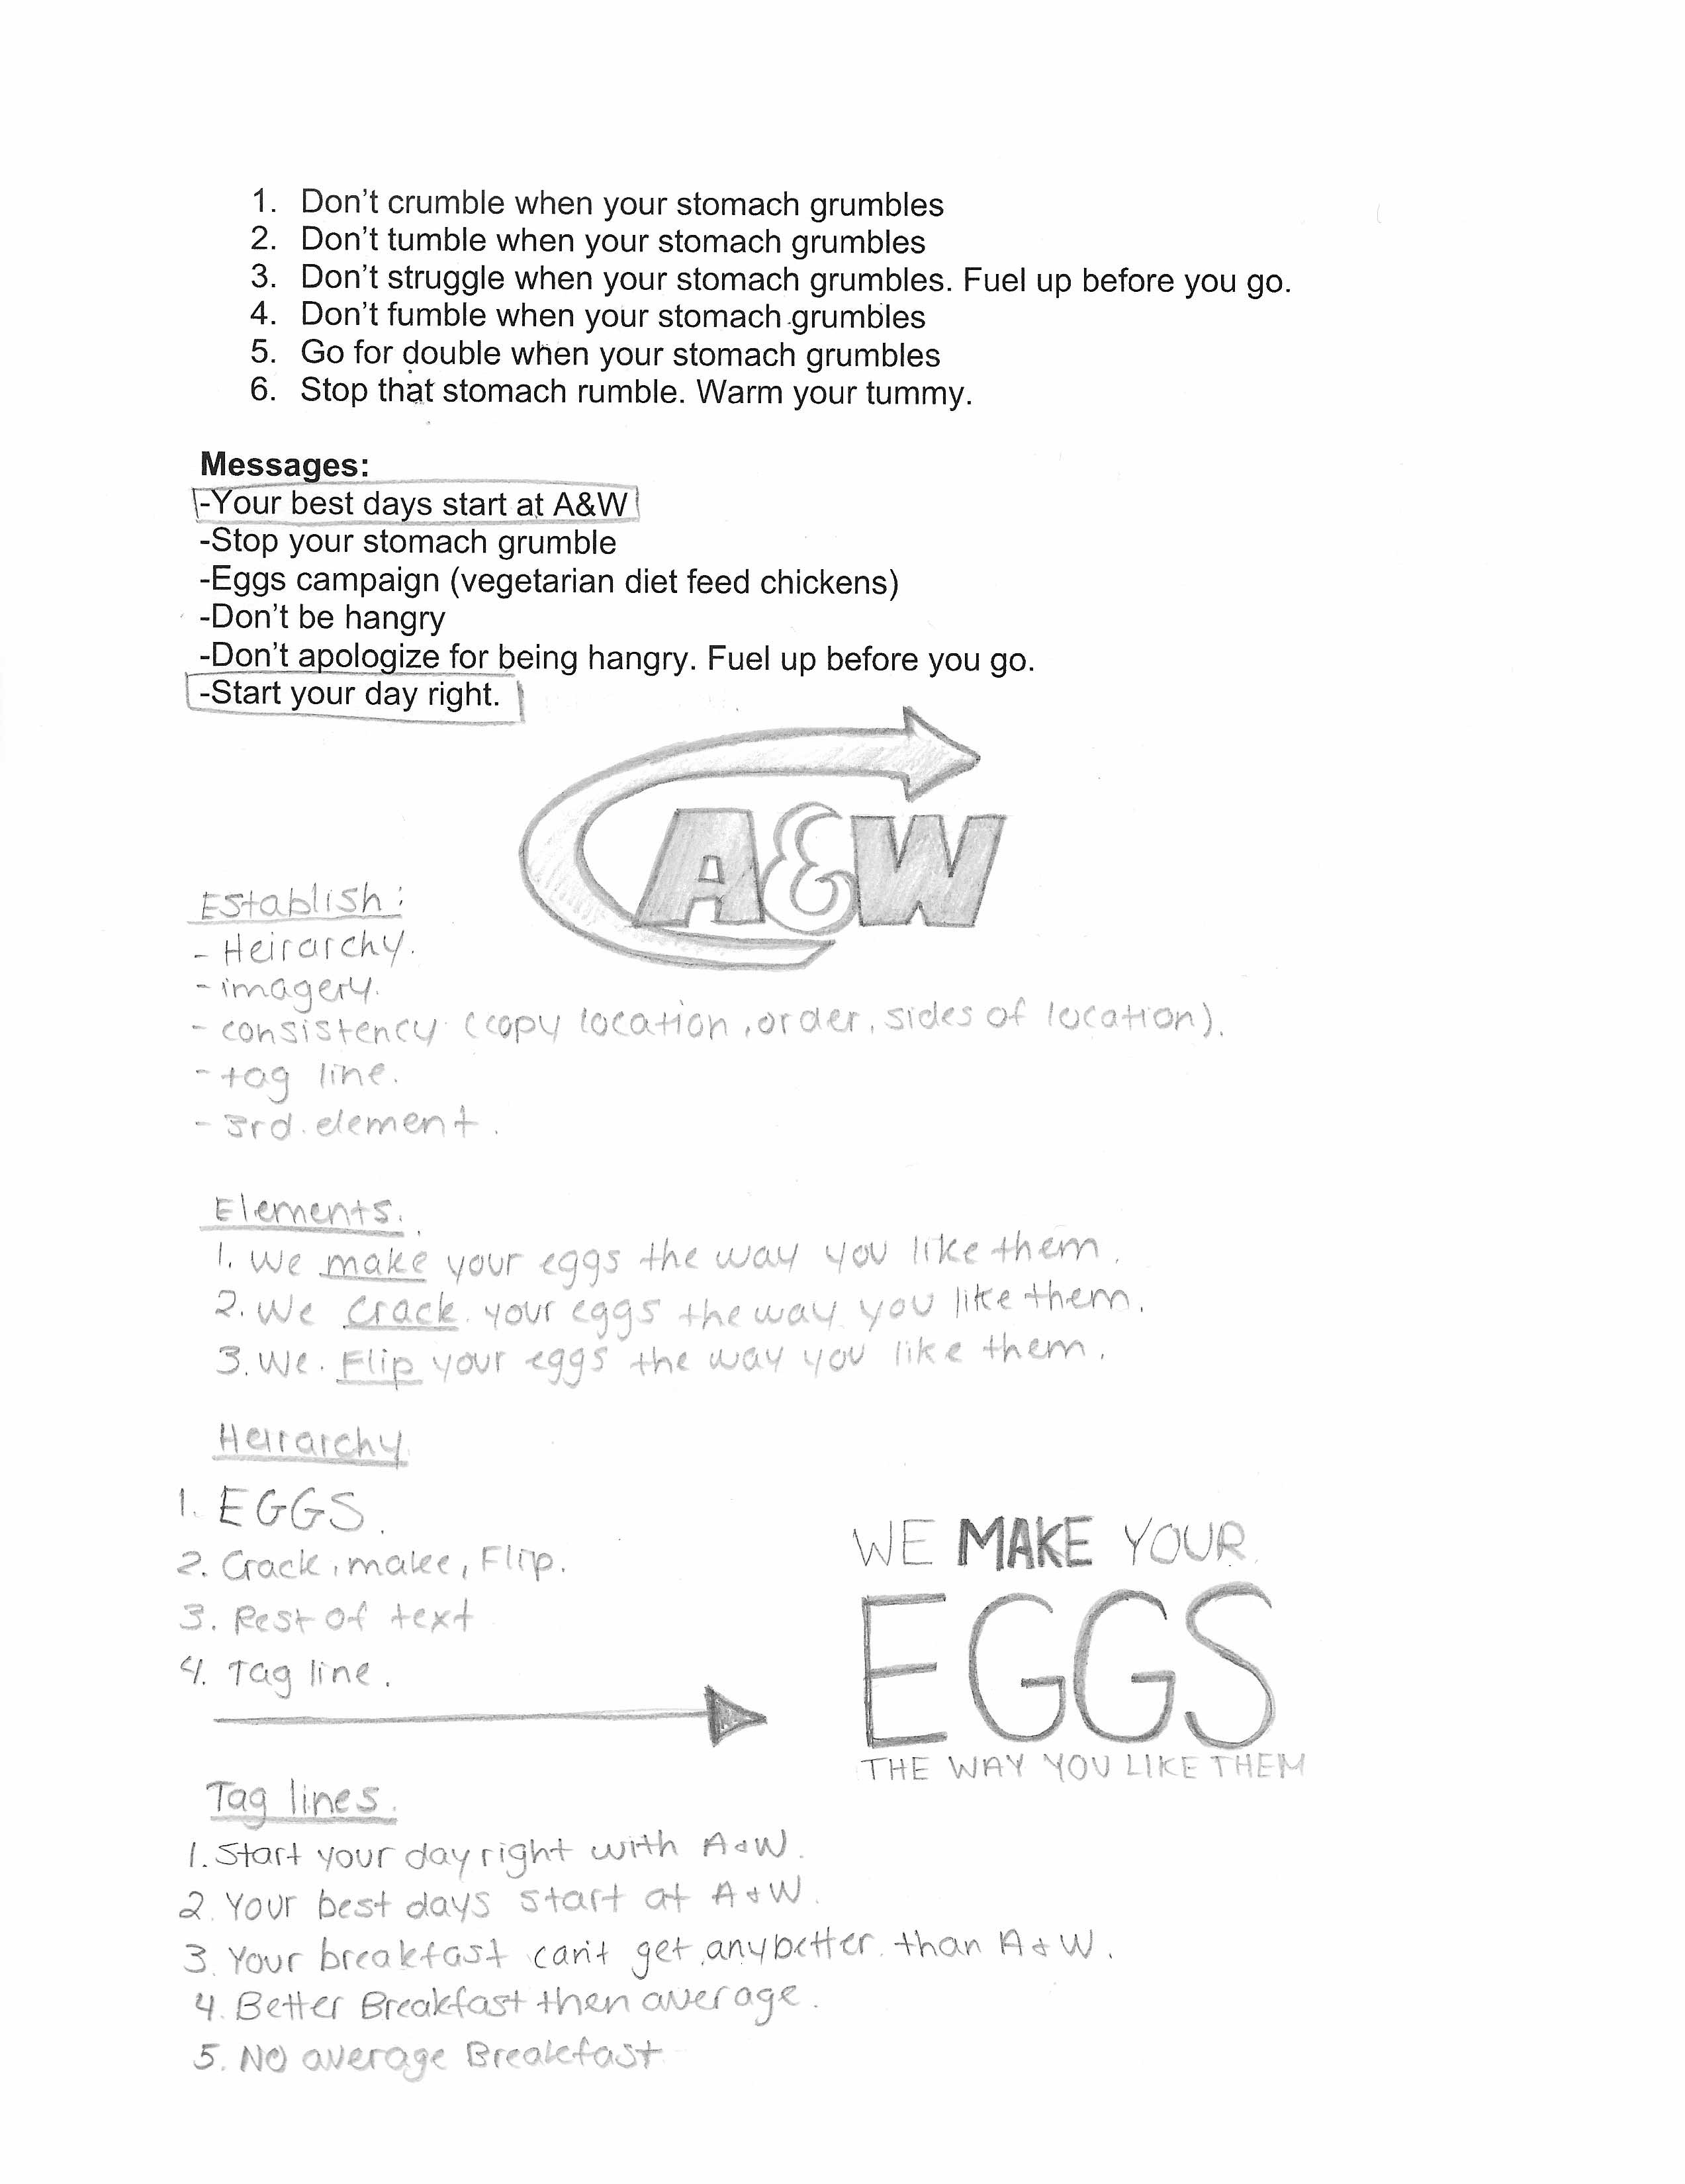 1. Don't crumble when your stomach grumbles
2. Don't tumble when your stomach grumbles
3. Don't struggle when your stomach grumbles. Fuel up before you go.
4. Don't fumble when your stomach grumbles
5. Go for double when your stomach grumbles
6. Stop that stomach rumble. Warm your tummy.
Messages:
-Your best days start at A&W
-Stop your stomach grumble
-Eggs campaign (vegetarian diet feed chickens)
-Don't be hangry
-Don't apologize for being hangry. Fuel up before you go.
-Start your day right.
A&W
Establish:
- Heirarchy.
- imagery.
- consistency (copy location, order, sides of location).
- tag line.
- 3rd. element.
Elements.
1. We make your eggs the way you like them.
2. We crack your eggs the way you like them.
3. We. Flip your eggs the way you like them.
Heirarchy
1. EGGS.
2. Crack, make, Flip.
3. Rest of text
4. Tag line.
WE MAKE YOUR
EGGS
THE WAY YOU LIKE THEM
Tag lines.
1. Start your day right with A&W.
2. Your best days start at A&W.
3. Your breakfast can't get any better than A&W.
4. Better Breakfast then average.
5. No average Breakfast